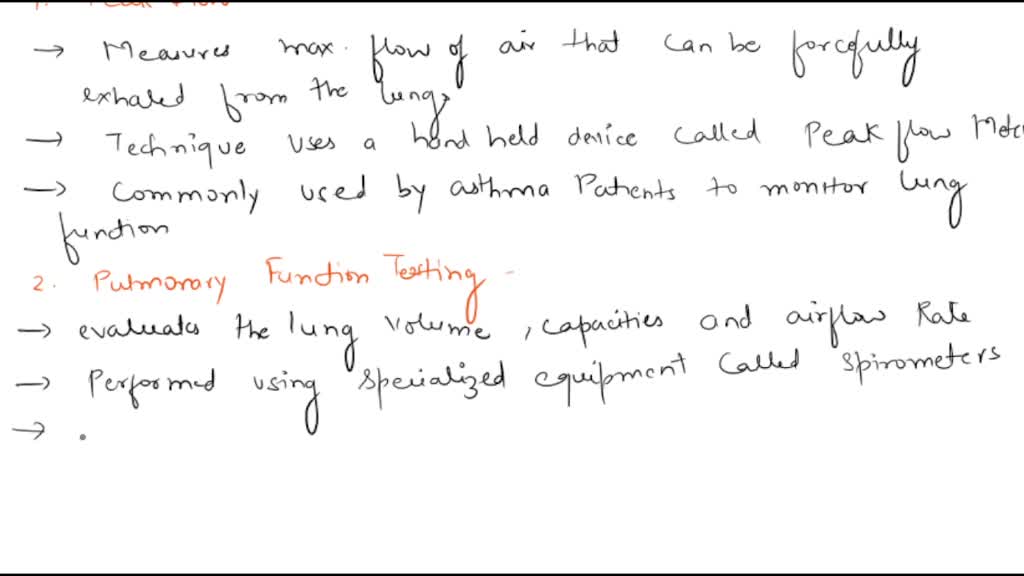 → Measures max. flow of air that can be forcefully
exhaled from the lungs
→ Technique uses a hand held device called Peak flow Mete
→ Commonly used by asthma Patients to monitor lung
function
2. Pulmonary Function Testing -
→ evaluates the lung volume, capacities and airflow Rate
→ Performed using specialized equipment called spirometers
→ .